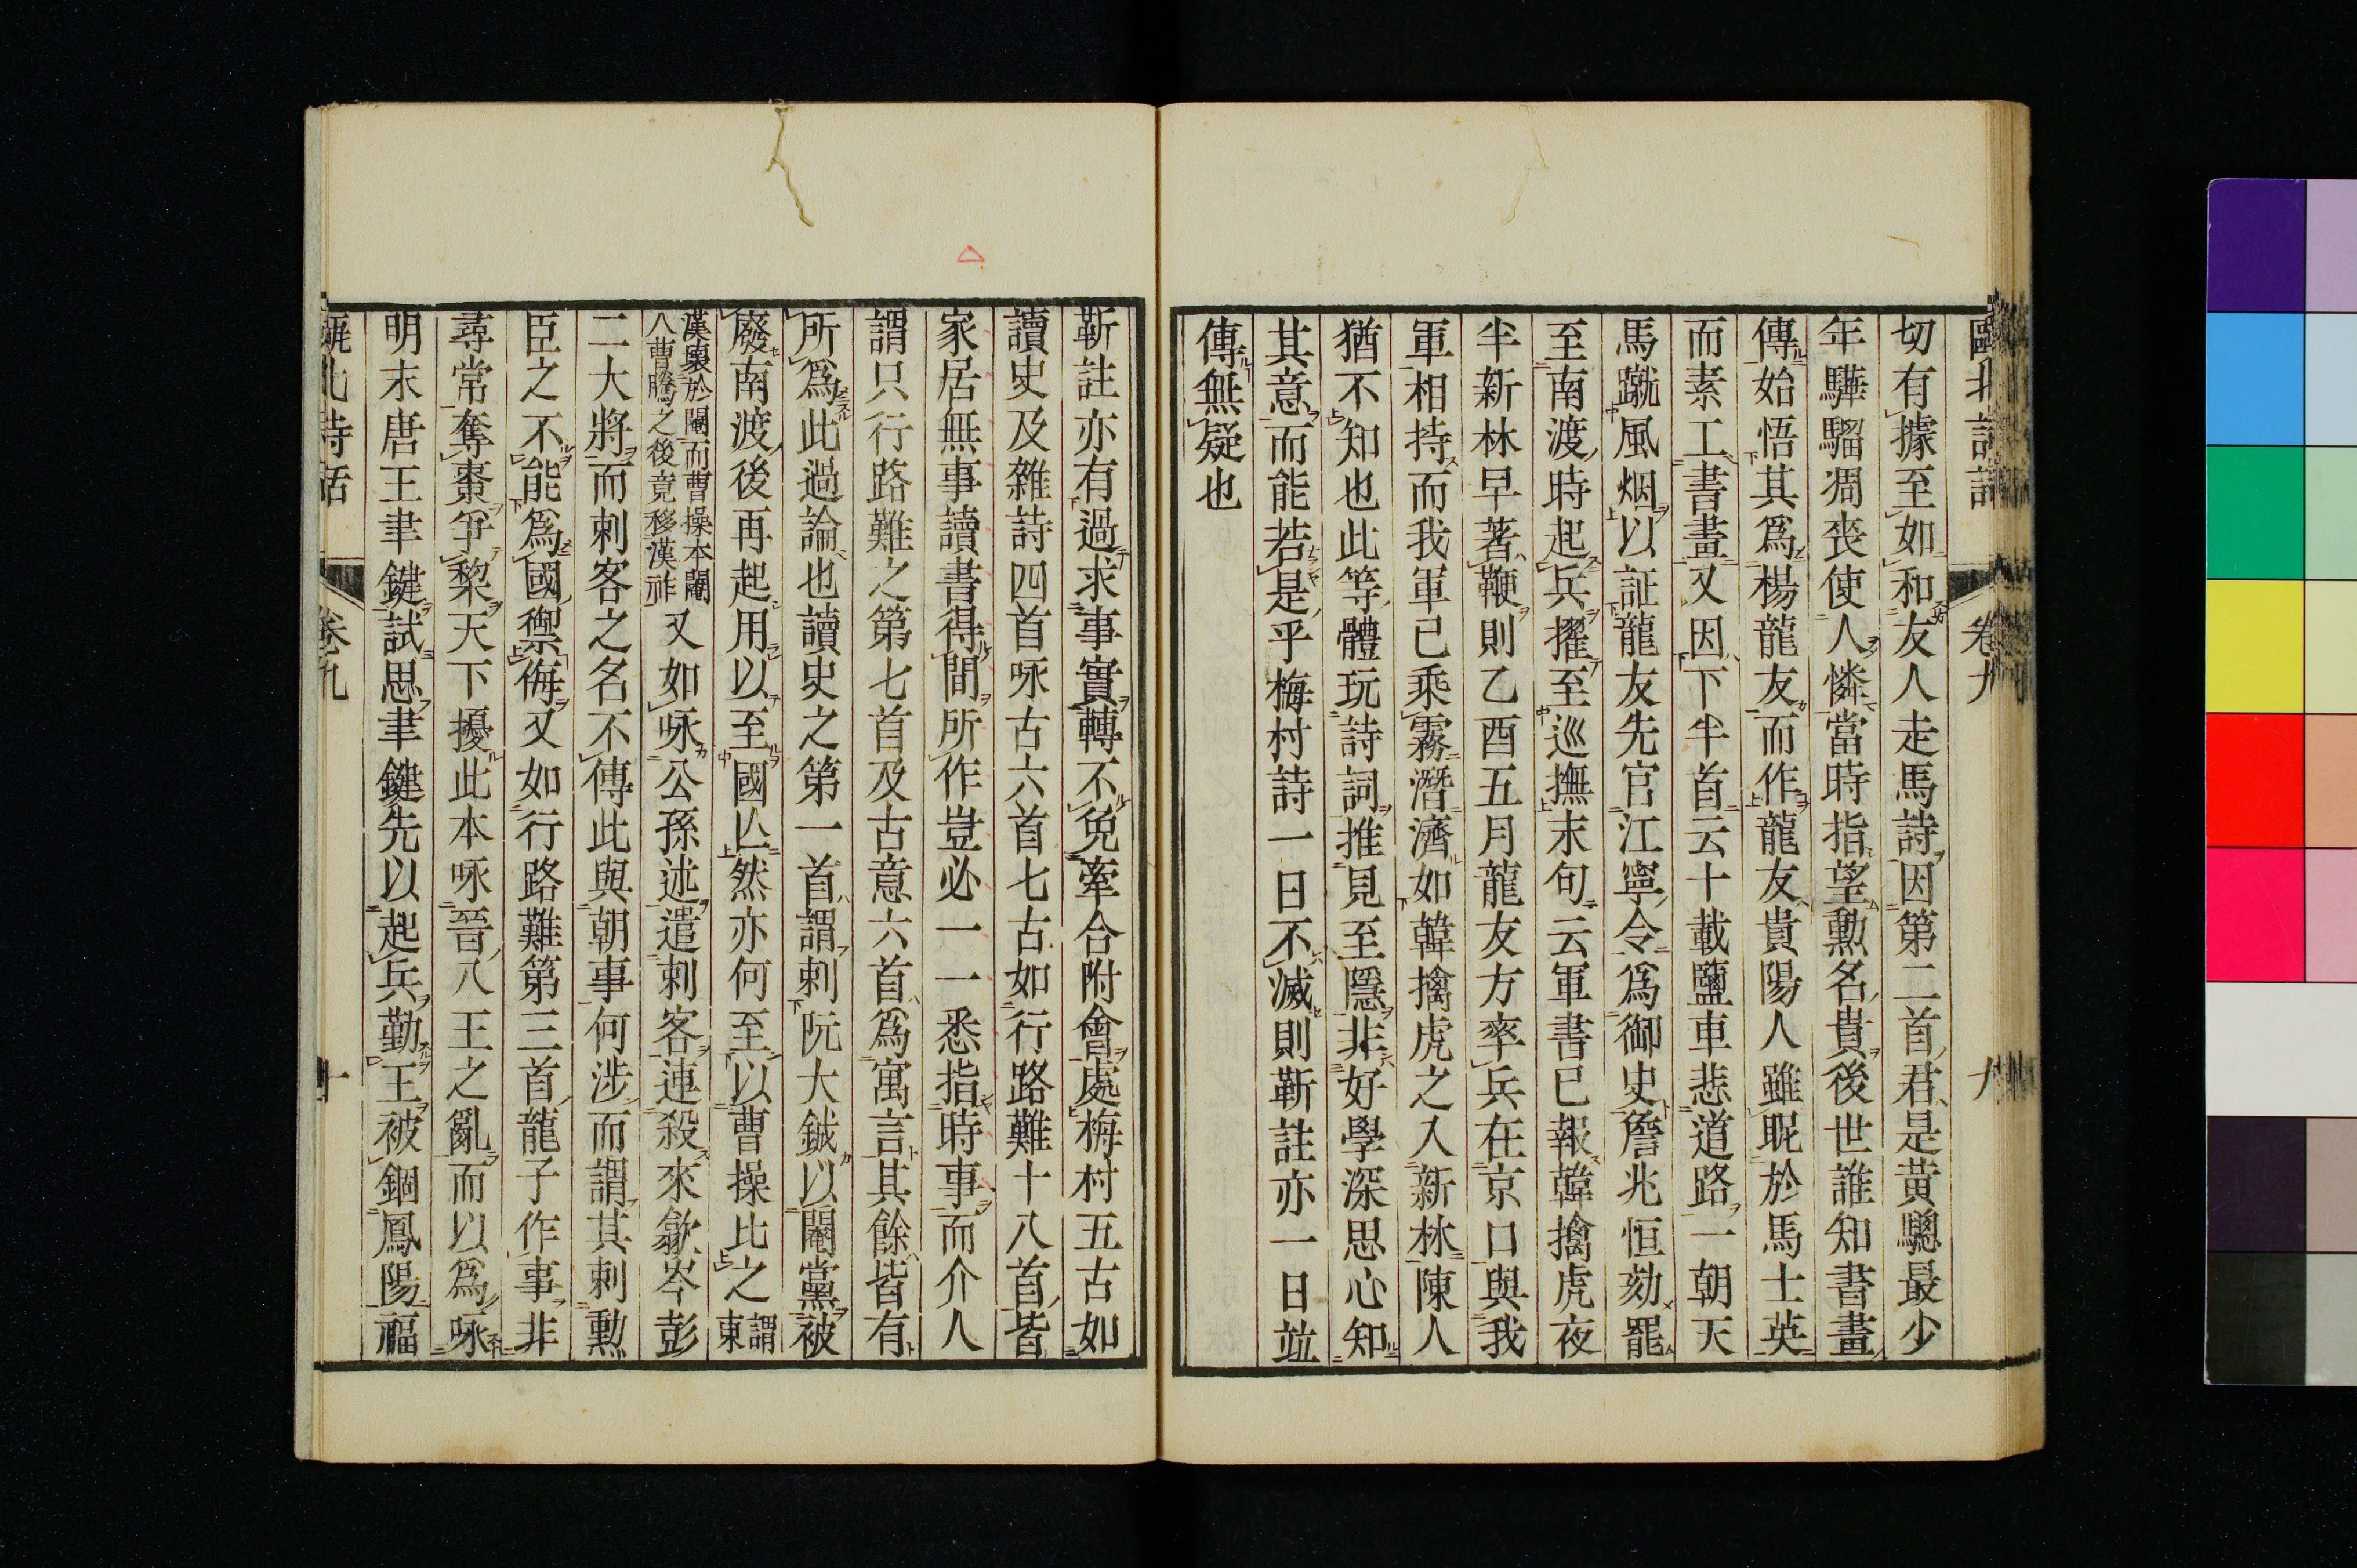 甌北詩話 卷九 九
切有據至如和友人走馬詩因第二首君是黄驄最少
年驊騮凋喪使人憐當時指望勲名貴後世誰知書畫
傳始悟其爲楊龍友而作龍友貴陽人雖昵於馬士英
而素工書畫又因下半首云十載鹽車悲道路一朝天
馬蹴風烟以証龍友先官江寧令爲御史詹兆恒劾罷
至南渡時起兵擢至巡撫末句云軍書已報韓擒虎夜
半新林早著鞭則乙酉五月龍友方率兵在京口與我
軍相持而我軍已乘霧潛濟如韓擒虎之入新林陳人
猶不知也此等體玩詩詞推見至隱非好學深思心知
其意而能若是乎梅村詩一日不滅則靳註亦一日竝
傳無疑也
靳註亦有過求事實轉不免牽合附會處梅村五古如
讀史及雜詩四首咏古六首七古如行路難十八首皆
家居無事讀書得間所作豈必一一悉指時事而介人
謂只行路難之第七首及古意六首爲寓言其餘皆有
所爲此過論也讀史之第一首謂刺阮大鋮以閹黨被
廢南渡後再起用以至國亾然亦何至以曹操比之謂東
漢壞於閹而曹操本閹人曹騰之後竟移漢祚又如咏公孫述遣刺客連殺來歙岑彭
二大將而刺客之名不傳此與朝事何涉而謂其刺勲
臣之不能爲國禦侮又如行路難第三首龍子作事非
尋常奪棗爭棃天下擾此本咏晉八王之亂而以爲咏
明末唐王聿鍵試思聿鍵先以起兵勤王被錮鳳陽福
甌北詩話 卷九 十